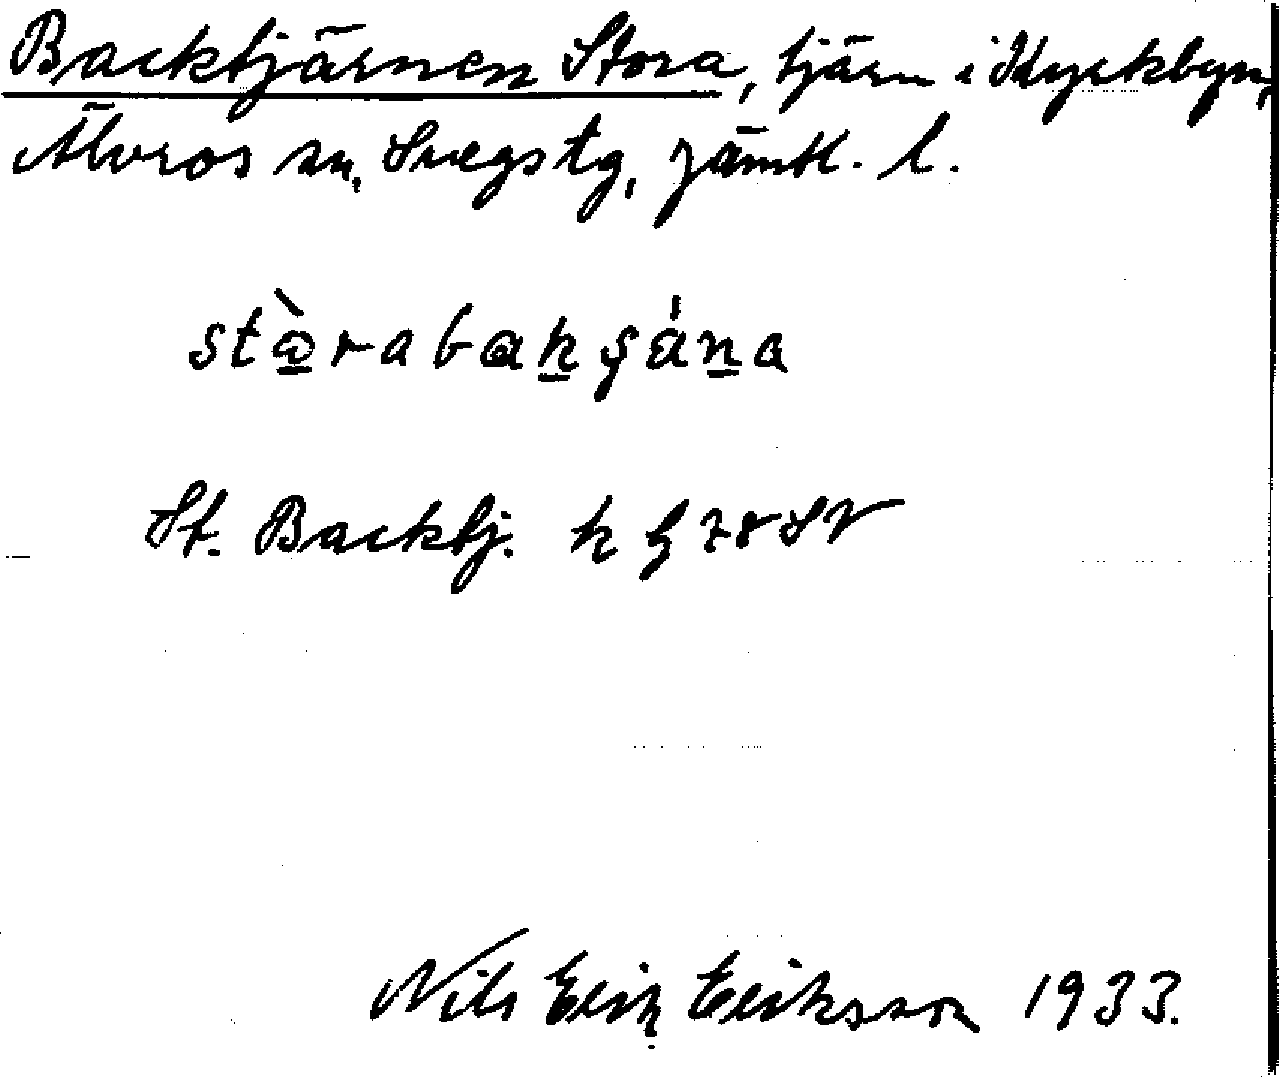 Backtjärnen Stora, tjärn i Kyrkbyn,
Älvros sn, Svegs tg, Jämtl. l.
stàrabakşána
St. Backtj. k
Nils Erik Eriksson 1933.